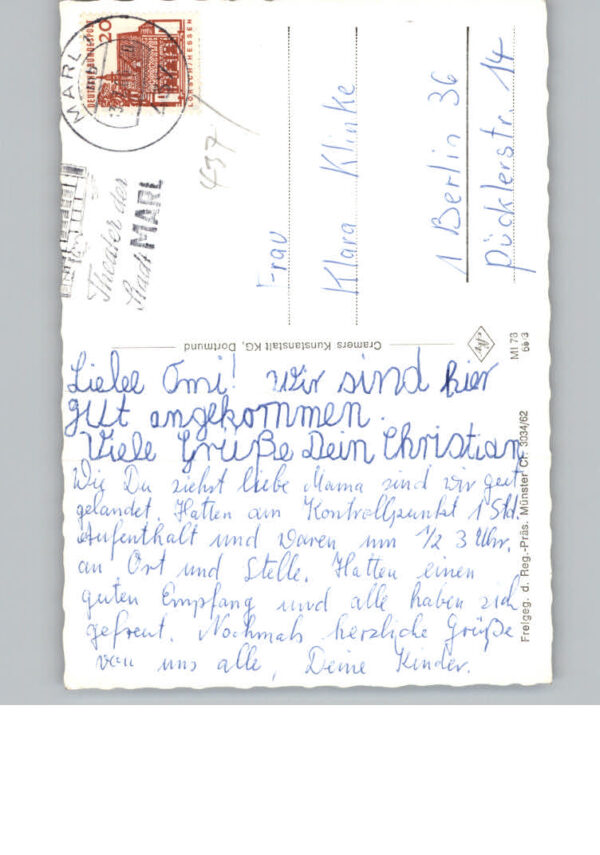 Liebe Omi! wir sind hier
gut angekommen.
Viele Grüße Dein Christian
Wie Du siehst liebe Mama sind wir gut
gelandet. Hatten am Kontrollpunkt 1 Std.
Aufenthalt und waren um 1/2 3 Uhr.
an Ort und Stelle. Hatten einen
guten Empfang und alle haben sich
gefreut. Nochmals herzliche Grüße
von uns alle, Deine Kinder.
Frau
Klara Klinke
1 Berlin 36
Pücklerstr. 14
DEUTSCHE BUNDESPOST
20
LORSCH/HESSEN
MARL
Theater der
Stadt MARL
437
Cramers Kunstanstalt KG, Dortmund
MI 73
Freigeg. d. Reg.-Präs. Münster Cr. 3034/62